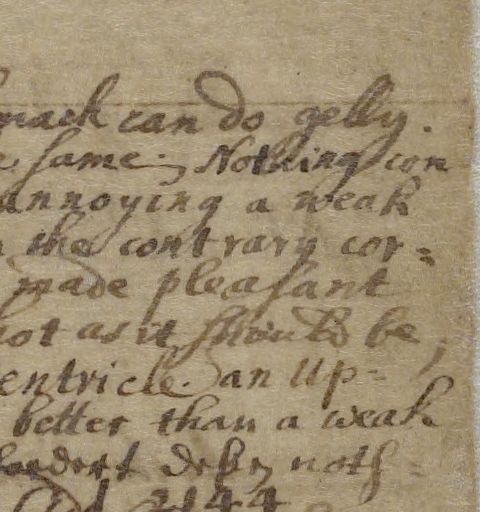 mack can do gelly.
e same; Nothing con
annoying a weak
the contrary cor=
made pleasant
not as it should be,
entricle. an Up=
better than a weak
noth=
2144